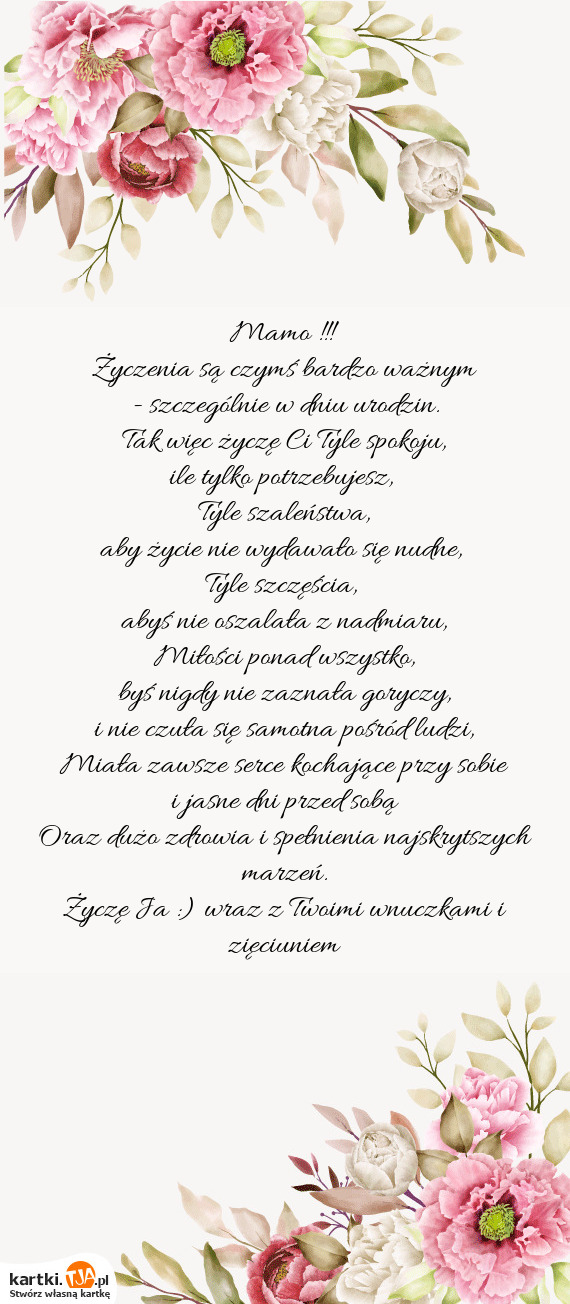 Mamo !!!
Życzenia są czymś bardzo ważnym
- szczególnie w dniu urodzin.
Tak więc życzę Ci Tyle spokoju,
ile tylko potrzebujesz,
Tyle szaleństwa,
aby życie nie wydawało się nudne,
Tyle szczęścia,
abyś nie oszalała z nadmiaru,
Miłości ponad wszystko,
byś nigdy nie zaznała goryczy,
i nie czuła się samotna pośród ludzi,
Miała zawsze serce kochające przy sobie
i jasne dni przed sobą
Oraz dużo zdrowia i spełnienia najskrytszych
marzeń.
Życzę Ja :) wraz z Twoimi wnuczkami i
zięciuniem
kartki.TJA.pl
Stwórz własną kartkę